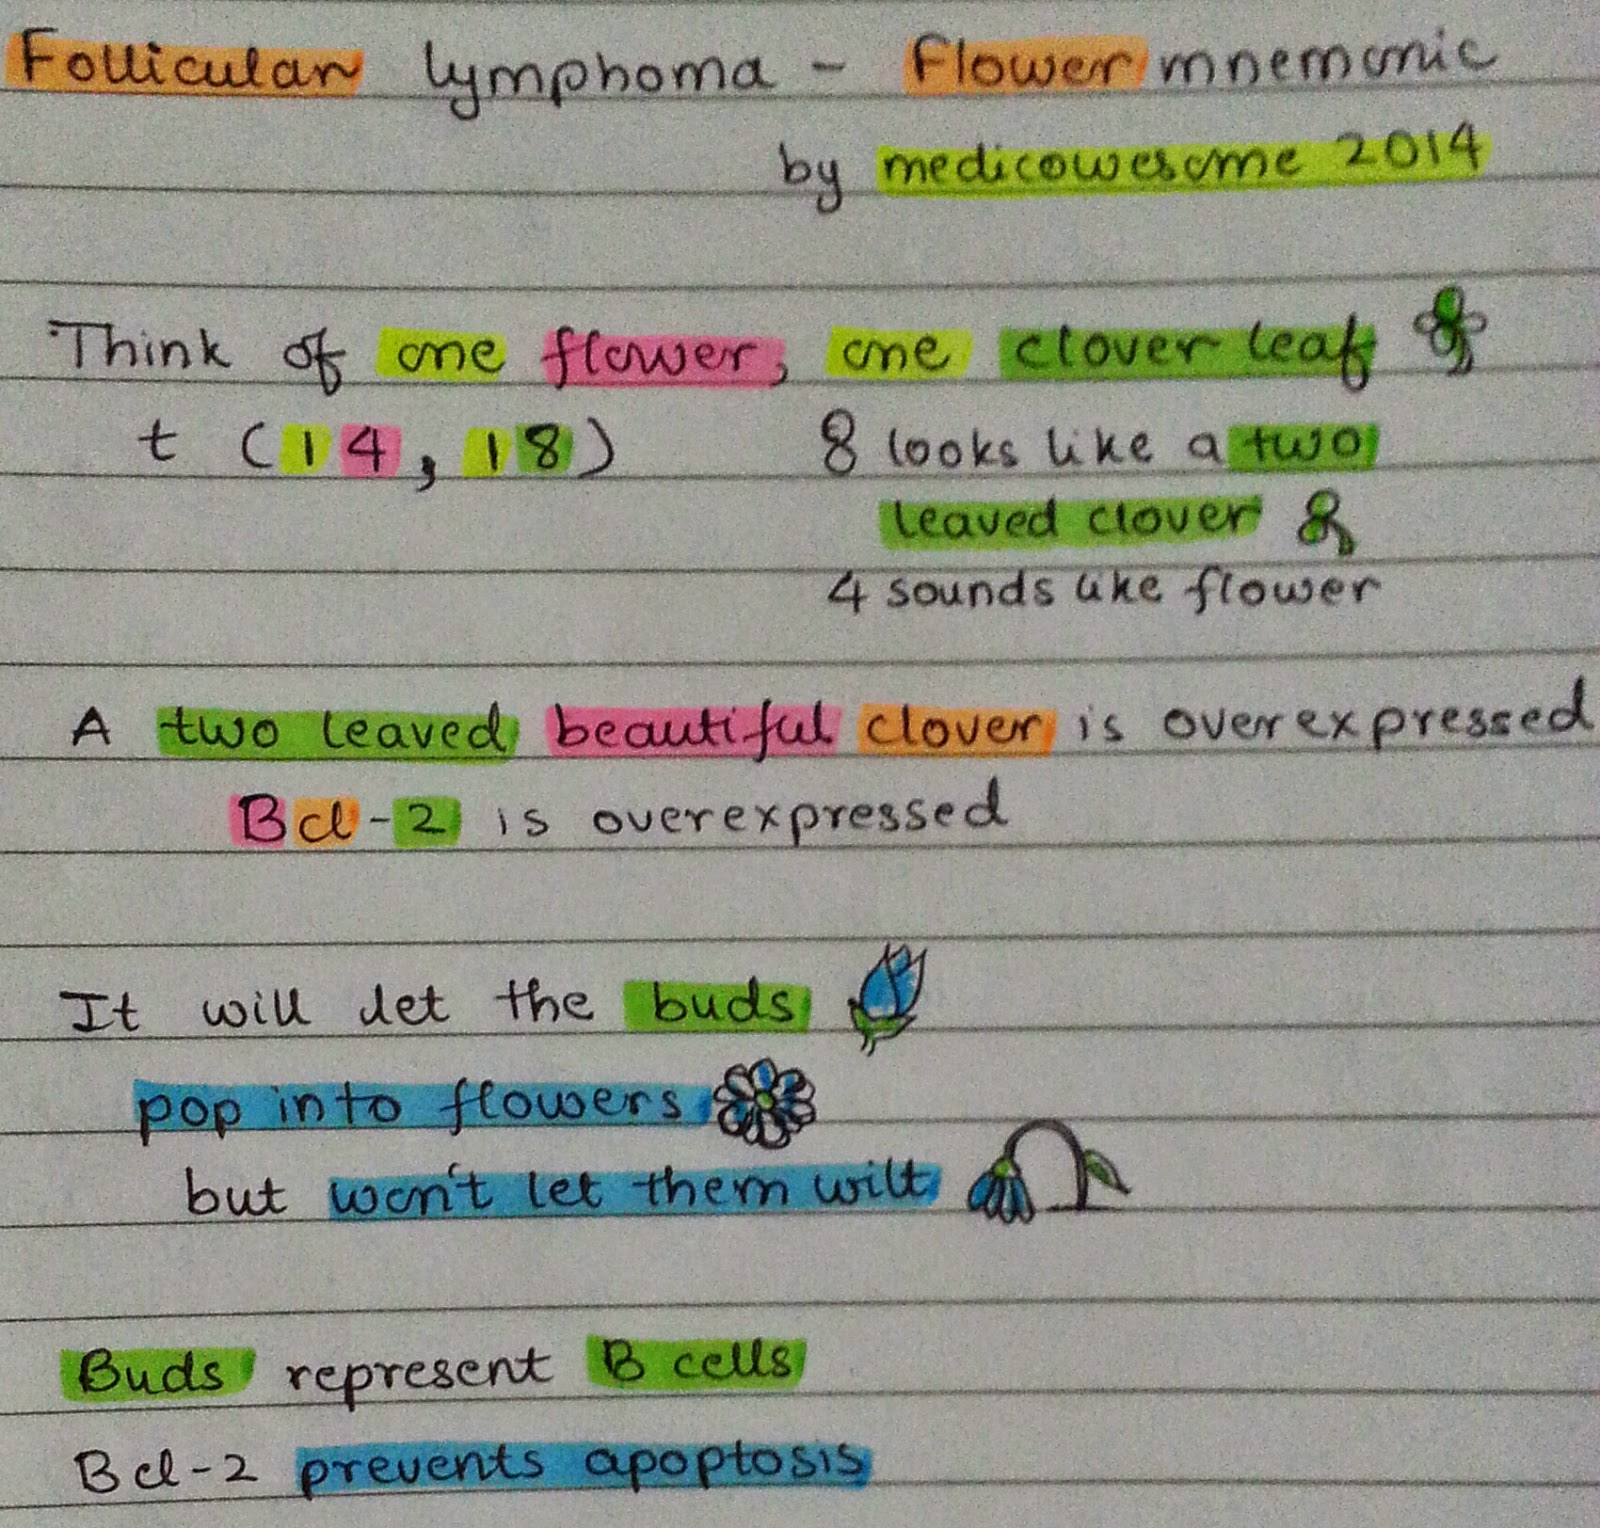 Follicular lymphoma - Flower mnemonic
by medicowesome 2014
Think of one flower, one clover leaf
t (14, 18) 8 looks like a two
leaved clover
4 sounds like flower
A two leaved beautiful clover is overexpressed
Bcl-2 is overexpressed
It will let the buds
pop into flowers
but won't let them wilt
Buds represent B cells
Bcl-2 prevents apoptosis